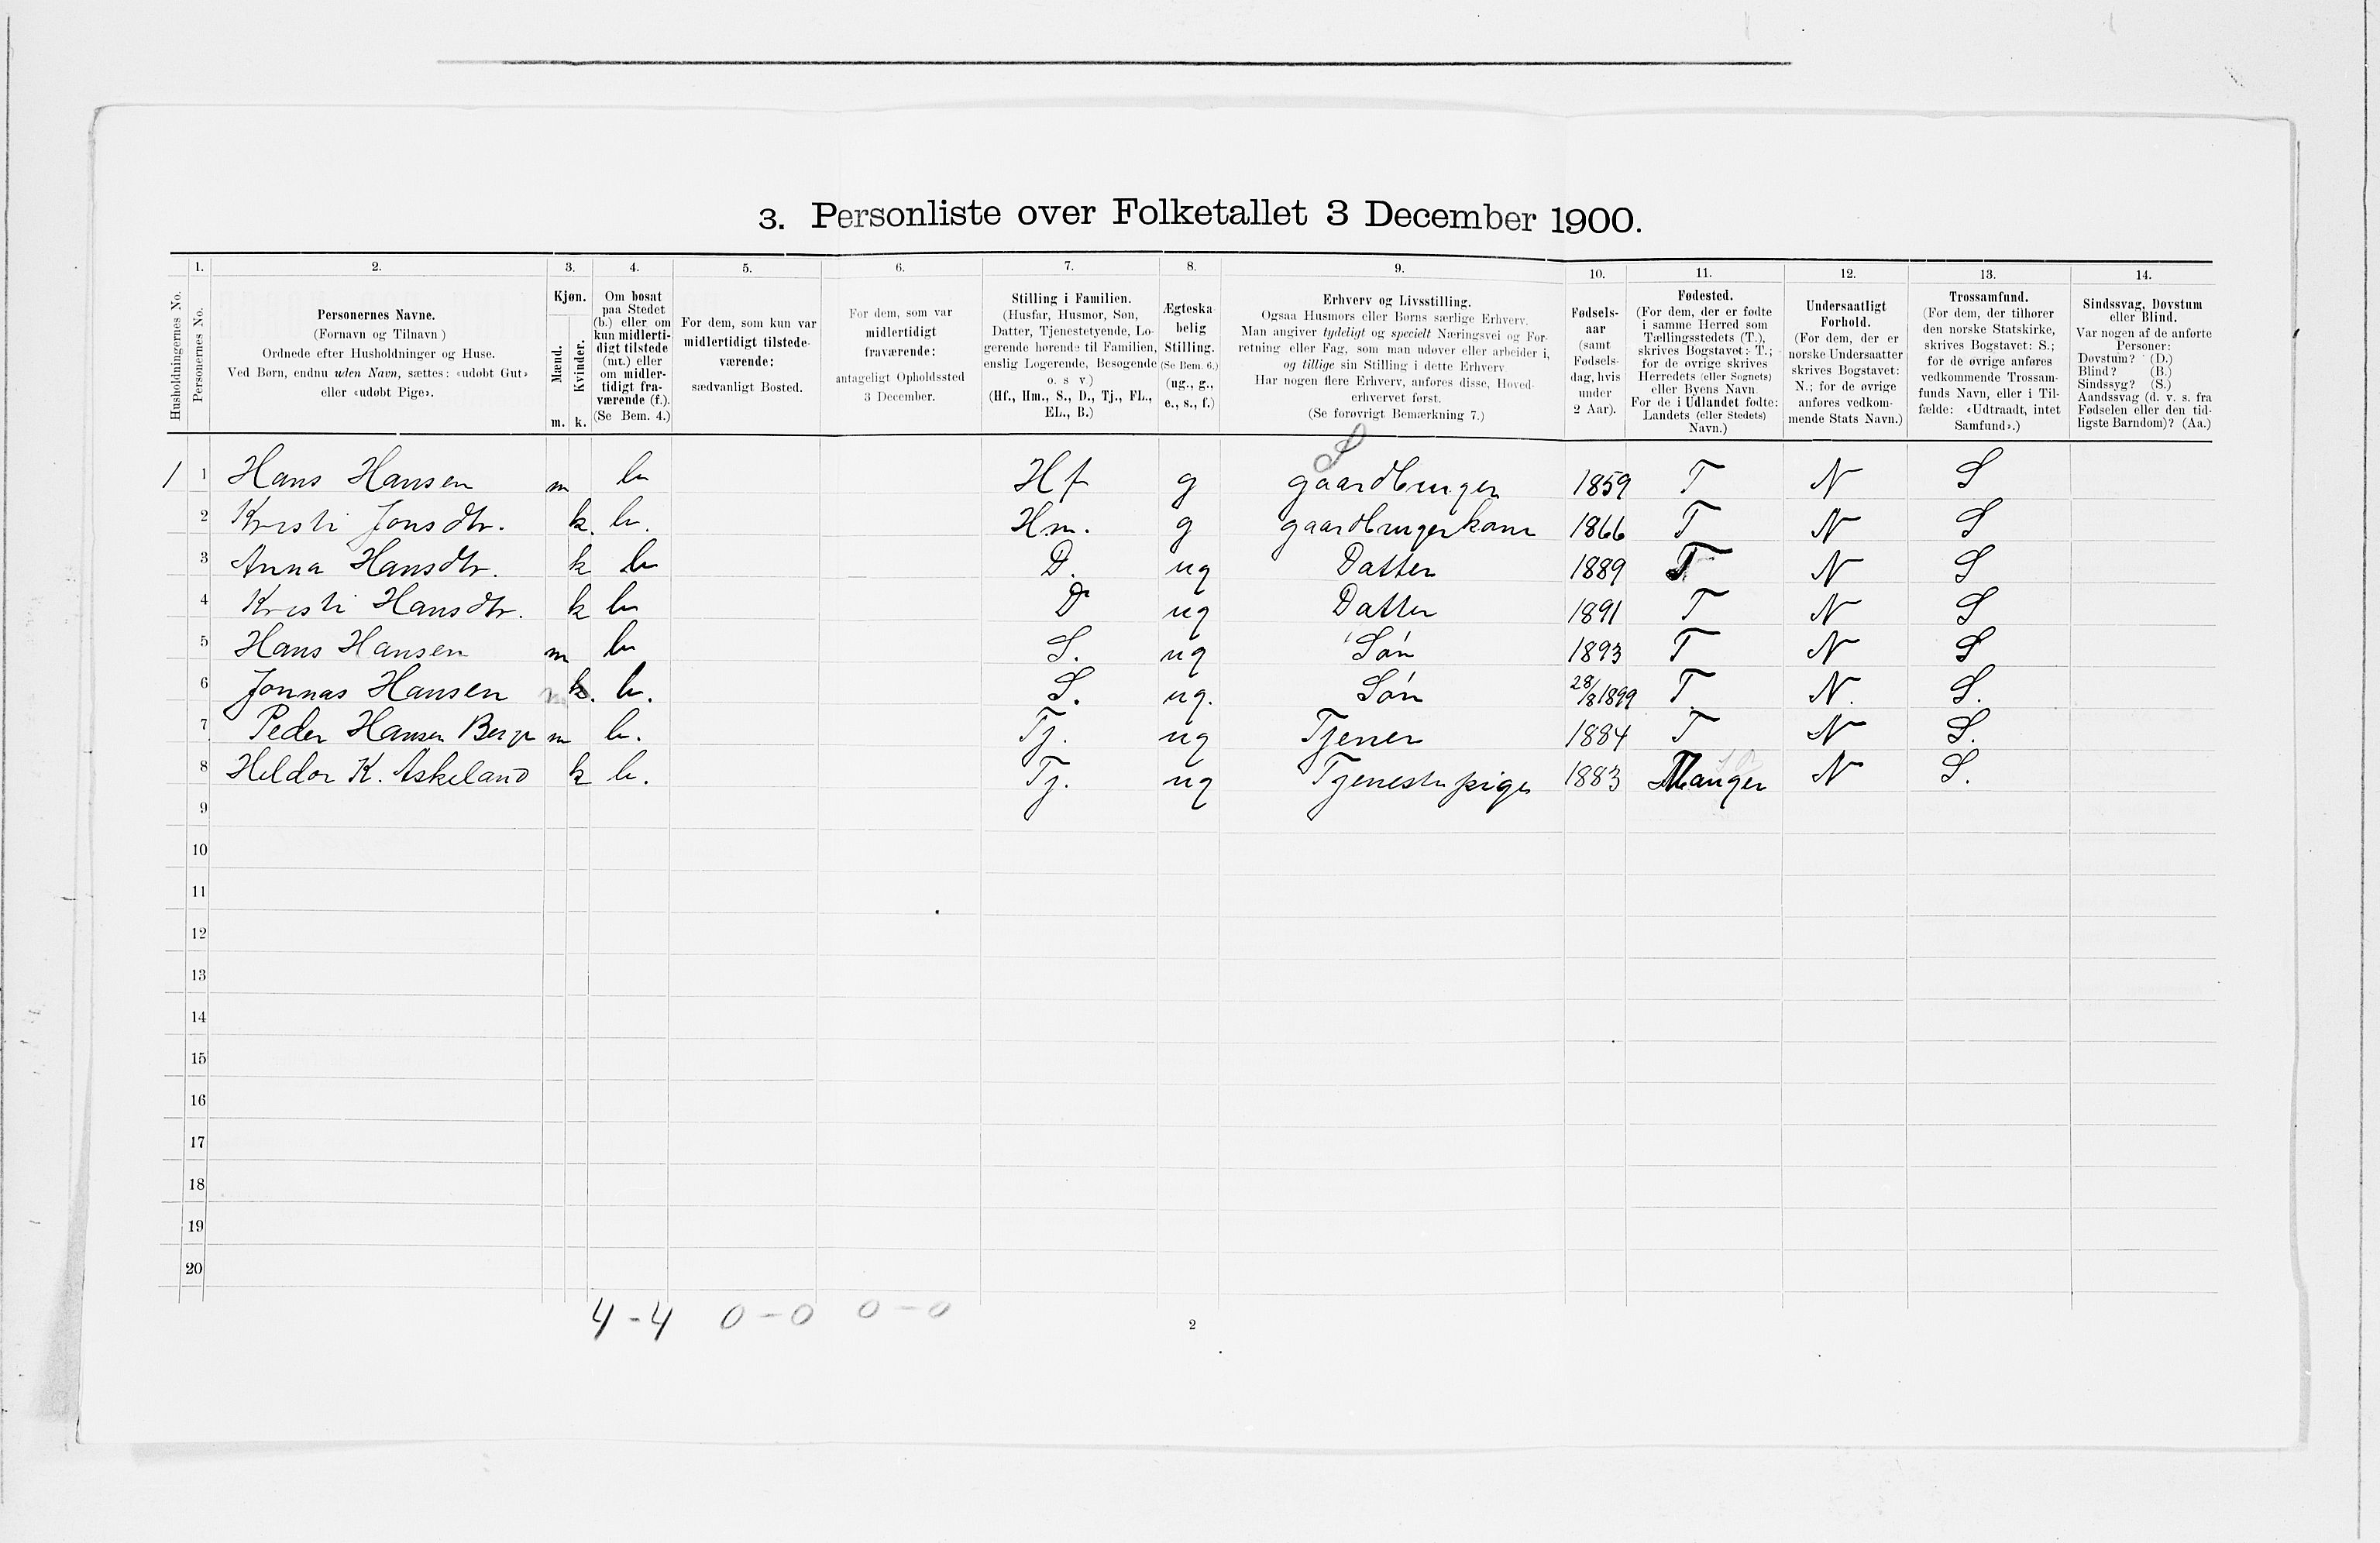 3. Personliste over Folketallet 3 December 1900.
1. 2. 3. 4. 5. 6. 7. 8. 9. 10. 11. 12. 13. 14.
Husholdningernes No.
Personernes No.
Personernes Navne.
(Fornavn og Tilnavn )
Ordnede efter Husholdninger og Huse.
Ved Børn, endnu uden Navn, sættes: «udøbt Gut»
eller «udøbt Pige».
Kjøn.
Mænd.
Kvinder.
m. k.
Om bosat
paa Stedet
(b.) eller om
kun midlerti-
digt tilstede
(mt.) eller
om midler-
tidigt fra-
værende (f.).
(Se Bem. 4.)
For dem, som kun var
midlertidigt tilstede-
værende:
sædvanligt Bosted.
For dem, som var
midlertidigt
fraværende:
antageligt Opholdssted
3 December.
Stilling i Familien.
(Husfar, Husmor, Søn,
Datter, Tjenestetyende, Lo-
gerende hørende til Familien,
enslig Logerende, Besøgende
o. s v.)
(Hf., Hm., S., D., Tj., FL.,
EL., B.)
Ægteska-
belig
Stilling.
(Se Bem. 6.)
(ug., g.,
e., s., f.)
Erhverv og Livsstilling.
Ogsaa Husmors eller Børns særlige Erhverv.
Man angiver tydeligt og specielt Næringsvei og For-
retning eller Fag, som man udøver eller arbeider i,
og tillige sin Stilling i dette Erhverv
Har nogen flere Erhverv, anføres disse, Hoved-
erhvervet først.
(Se forøvrigt Bemærkning 7.)
Fødsels-
aar
(samt
Fødsels-
dag, hvis
under
2 Aar).
Fødested.
(For dem, der er fødte
i samme Herred som
Tællingsstedets (T.),
skrives Bogstavet: T.;
for de øvrige skrives
Herredets (eller Sognets)
eller Byens Navn
For de i Udlandet fødte:
Landets (eller Stedets)
Navn.)
Undersaatligt
Forhold.
(For dem, der er
norske Undersaatter
skrives Bogstavet:
N.; for de øvrige
anføres vedkom-
mende Stats Navn.)
Trossamfund.
(For dem, der tilhører
den norske Statskirke,
skrives Bogstavet: S.;
for de øvrige anføres
vedkommende Trossam-
funds Navn, eller i Til-
fælde: «Udtraadt, intet
Samfund».)
Sindssvag, Døvstum
eller Blind.
Var nogen af de anførte
Personer:
Døvstum? (D.)
Blind? (B.)
Sindssyg? (S.)
Aandssvag (d. v. s. fra
Fødselen eller den tid-
ligste Barndom)? (Aa.)
S
1 1 Hans Hansen m b Hf g gaardbruger 1859 T N S
2 Kristi Jonsdtr. k. b. Hm. g gaardbrugerkone 1866 T N S
3 Anna Hansdtr. k b D. ug Datter 1889 T N S
4 Kristi Hansdtr. k b D ug Datter 1891 T N S
5 Hans Hansen m b S. ug Søn 1893 T N S
6 Jonnas Hansen m k. b. S. ug. Søn 28/8 1899 T. N. S.
7 Peder Hansen Berge m b. Tj. ug Tjener 1884 T N S.
8 Heldor K. Askeland k b. Tj. ug Tjenestepige 1883 Manger N S.
9
10
11
12
13
14
15
16
17
18
19
20
4-4 0-0 0-0
2